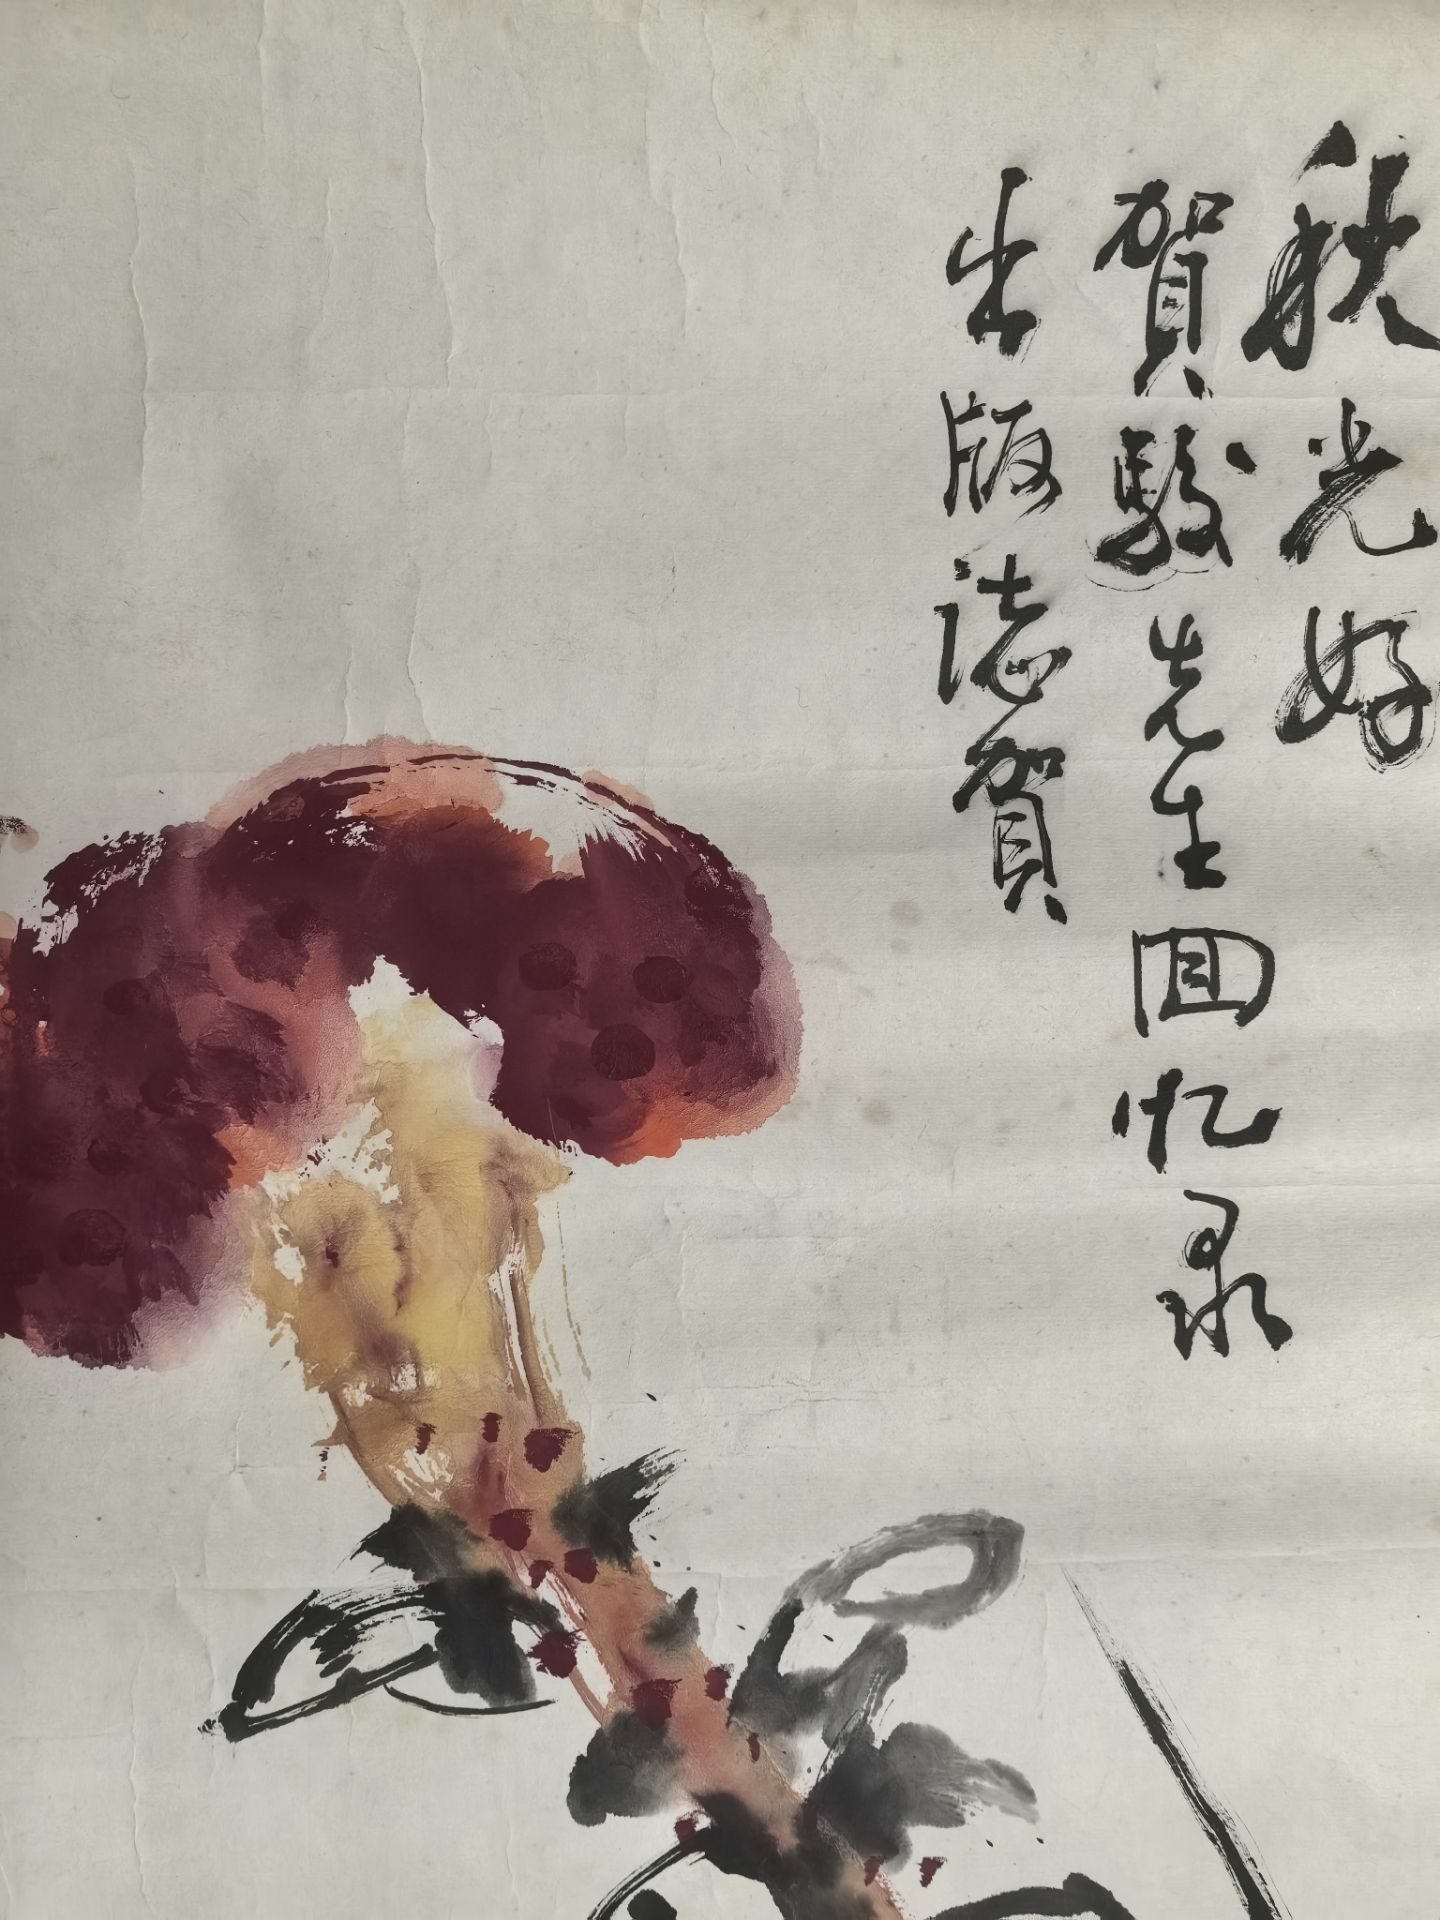 秋光好
賀駿先生回忆录
出版誌賀